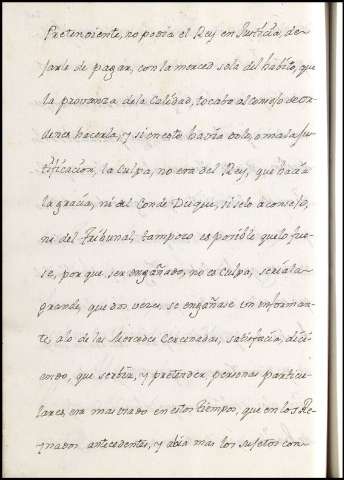 Pretendiente, no podia el Rey en Justicia, de-
jarle de pagar, con la merced sola del habito, que
la provanza dela Calidad, tocaba al consejo de Or-
denes hacerla, y si en esto havia dolo, o mala Jus-
tificacion, la Culpa, no era del Rey, que hacia
la gracia, ni del Conde Duque, si selo aconsejo,
ni del Tribunal, tampoco es posible quelo fue-
se, por que ser engañado, no es culpa, seriala
grande, que dos veces, se engañase un informan-
te, alo de las Mercedes Cercenadas, satisfacia, dici-
endo, que serbir, y pretender personas particu-
lares, era mas usado en estos tiempos, que en los Re-
ynados antecedentes, y abia mas los sujetos con-